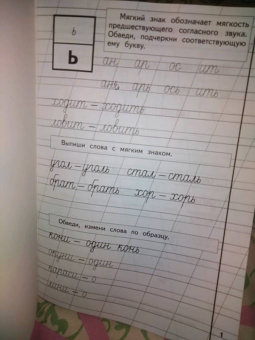 ь
Ь
Мягкий знак обозначает мягкость
предшествующего согласного звука.
Обведи, подчеркни соответствующую
ему букву.
ан ар ос ит
ань арь ось ить
ходит – ходить
ловит – ловить
Выпиши слова с мягким знаком.
угол – уголь стал – сталь
брат – брать хор – хорь
Обведи, измени слова по образцу.
кони – один конь
окуни – один
караси – о
1